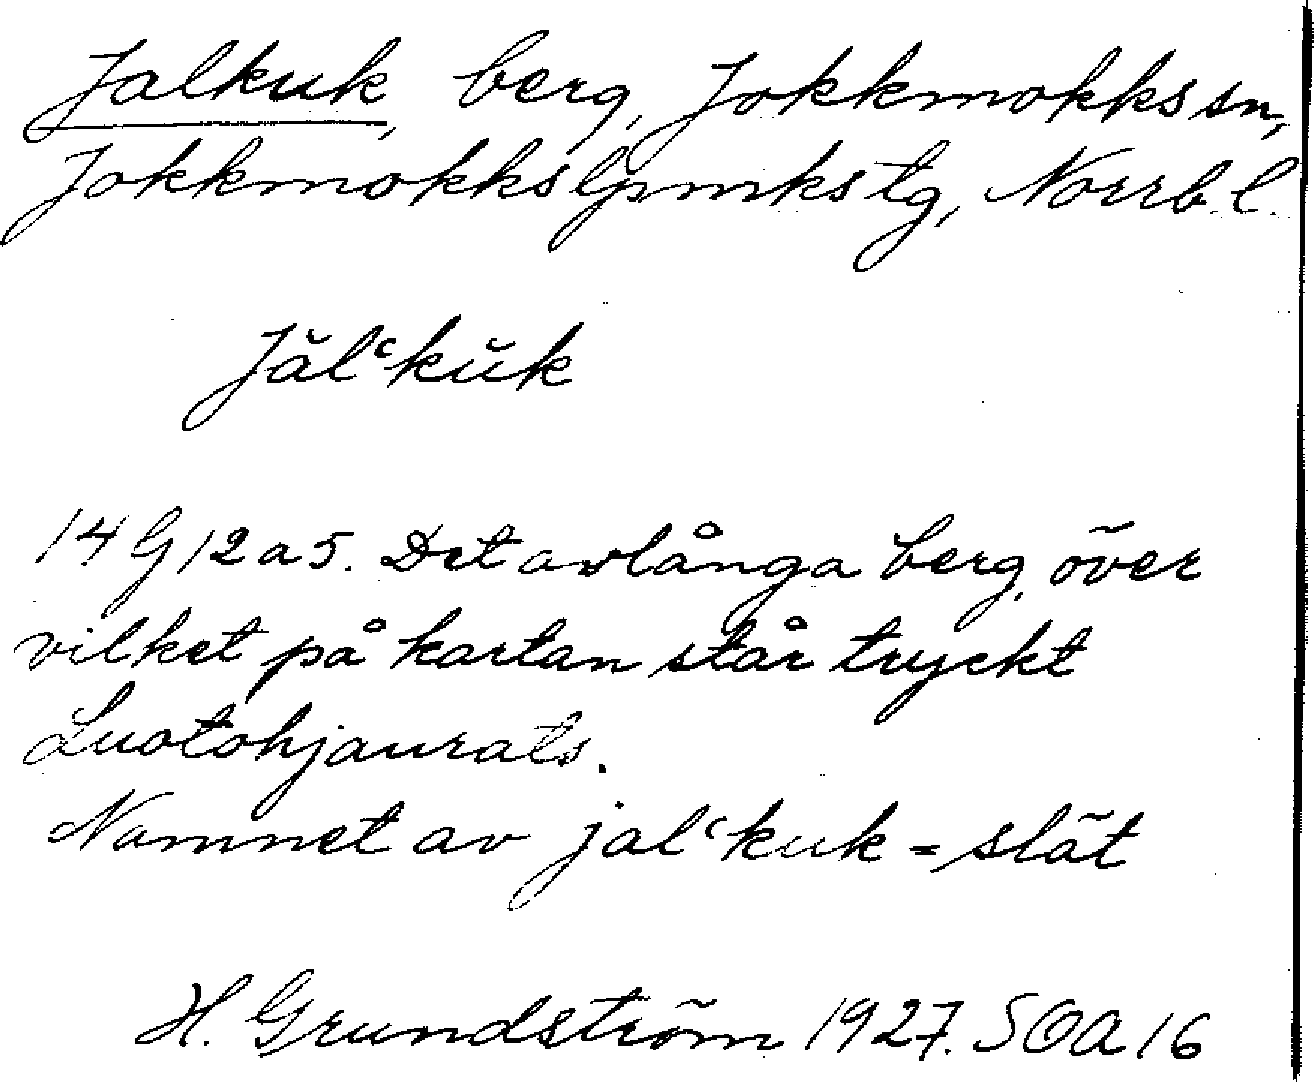 Jalkuk, berg, Jokkmokks sn,
Jokkmokks lpmks tg, Norrb. l.
Jălʿkŭk
14 G 12 a 5. Det avlånga berg, över
vilket på kartan står tryckt
Luotohjaurats.
Namnet av jalʿkuk = slät
H. Grundström 1927. SOA 16